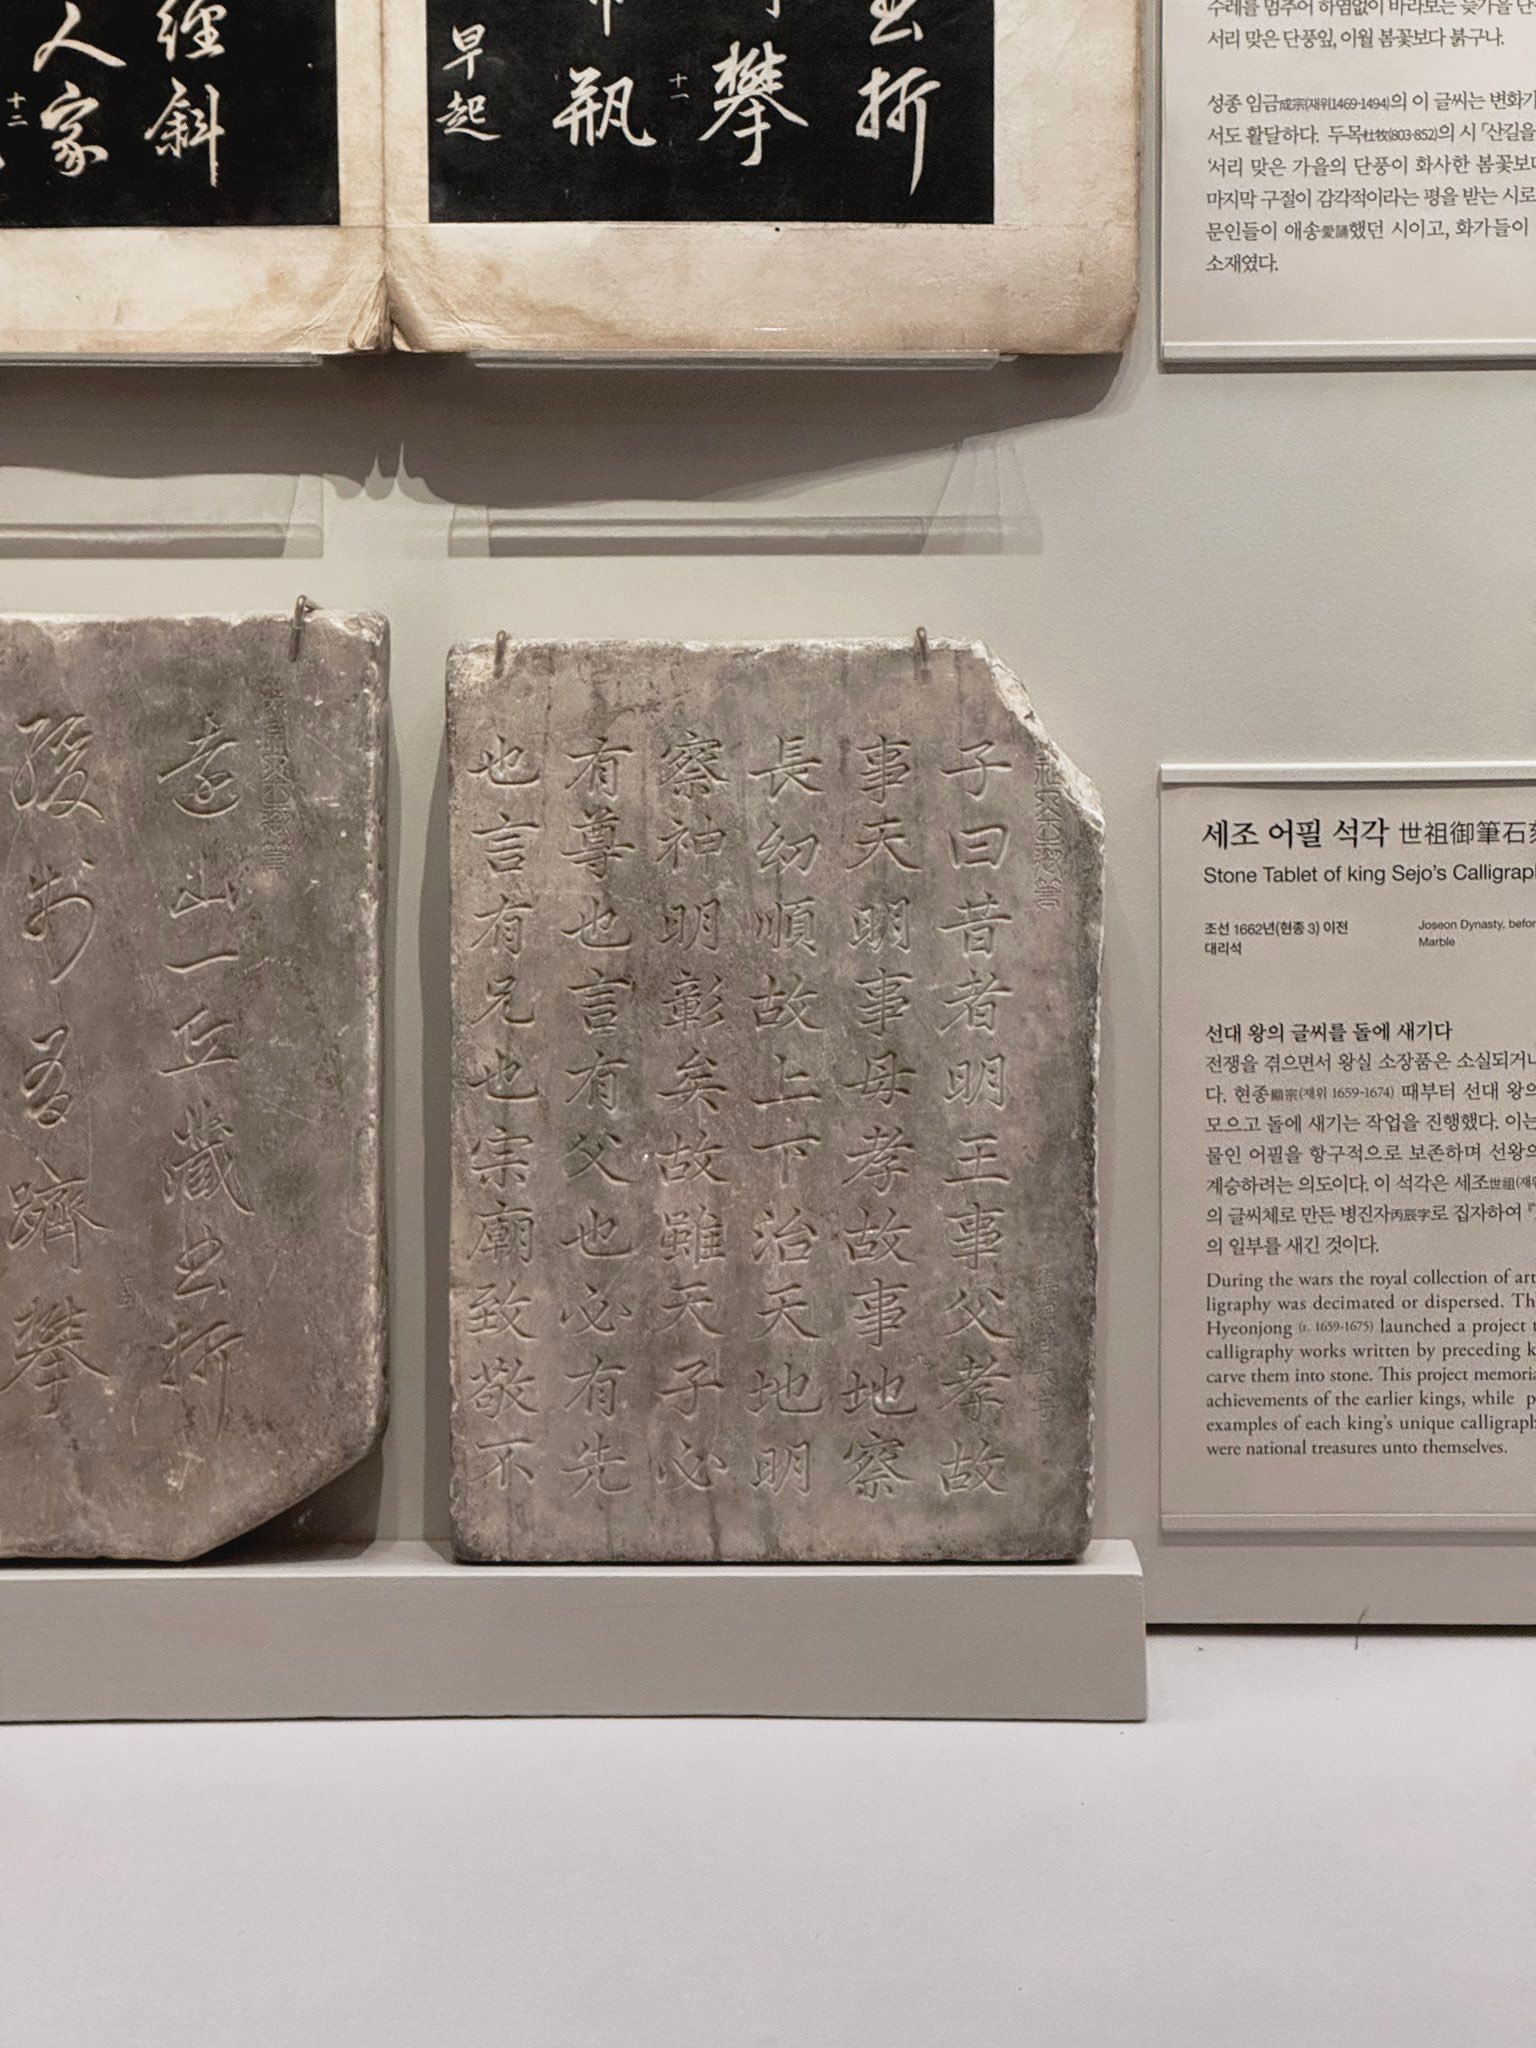 經斜
人家
十二
㐀折
攀
十一
瓶
早起
수레를 멈추어 하염없이 바라보는 늦가을 단
서리 맞은 단풍잎, 이월 봄꽃보다 붉구나.
성종 임금成宗(재위1469-1494)의 이 글씨는 변화가
서도 활달하다. 두목杜牧(803-852)의 시 「산길을
‘서리 맞은 가을의 단풍이 화사한 봄꽃보다
마지막 구절이 감각적이라는 평을 받는 시로
문인들이 애송愛誦했던 시이고, 화가들이
소재였다.
遠山一丘藏㐀折
子曰昔者明王事父孝故
事天明事母孝故事地察
長幼順故上下治天地明
察神明彰矣故雖天子必
有尊也言有父也必有先
也言有兄也宗廟致敬不
세조 어필 석각 世祖御筆石刻
Stone Tablet of king Sejo’s Calligraph
조선 1662년(현종 3) 이전
대리석
Joseon Dynasty, before
Marble
선대 왕의 글씨를 돌에 새기다
전쟁을 겪으면서 왕실 소장품은 소실되거나
다. 현종顯宗(재위 1659-1674) 때부터 선대 왕의
모으고 돌에 새기는 작업을 진행했다. 이는
물인 어필을 항구적으로 보존하며 선왕의
계승하려는 의도이다. 이 석각은 세조世祖(재위
의 글씨체로 만든 병진자丙辰字로 집자하여
의 일부를 새긴 것이다.
During the wars the royal collection of art
ligraphy was decimated or dispersed. Th
Hyeonjong (r. 1659-1675) launched a project t
calligraphy works written by preceding k
carve them into stone. This project memoria
achievements of the earlier kings, while p
examples of each king’s unique calligraph
were national treasures unto themselves.